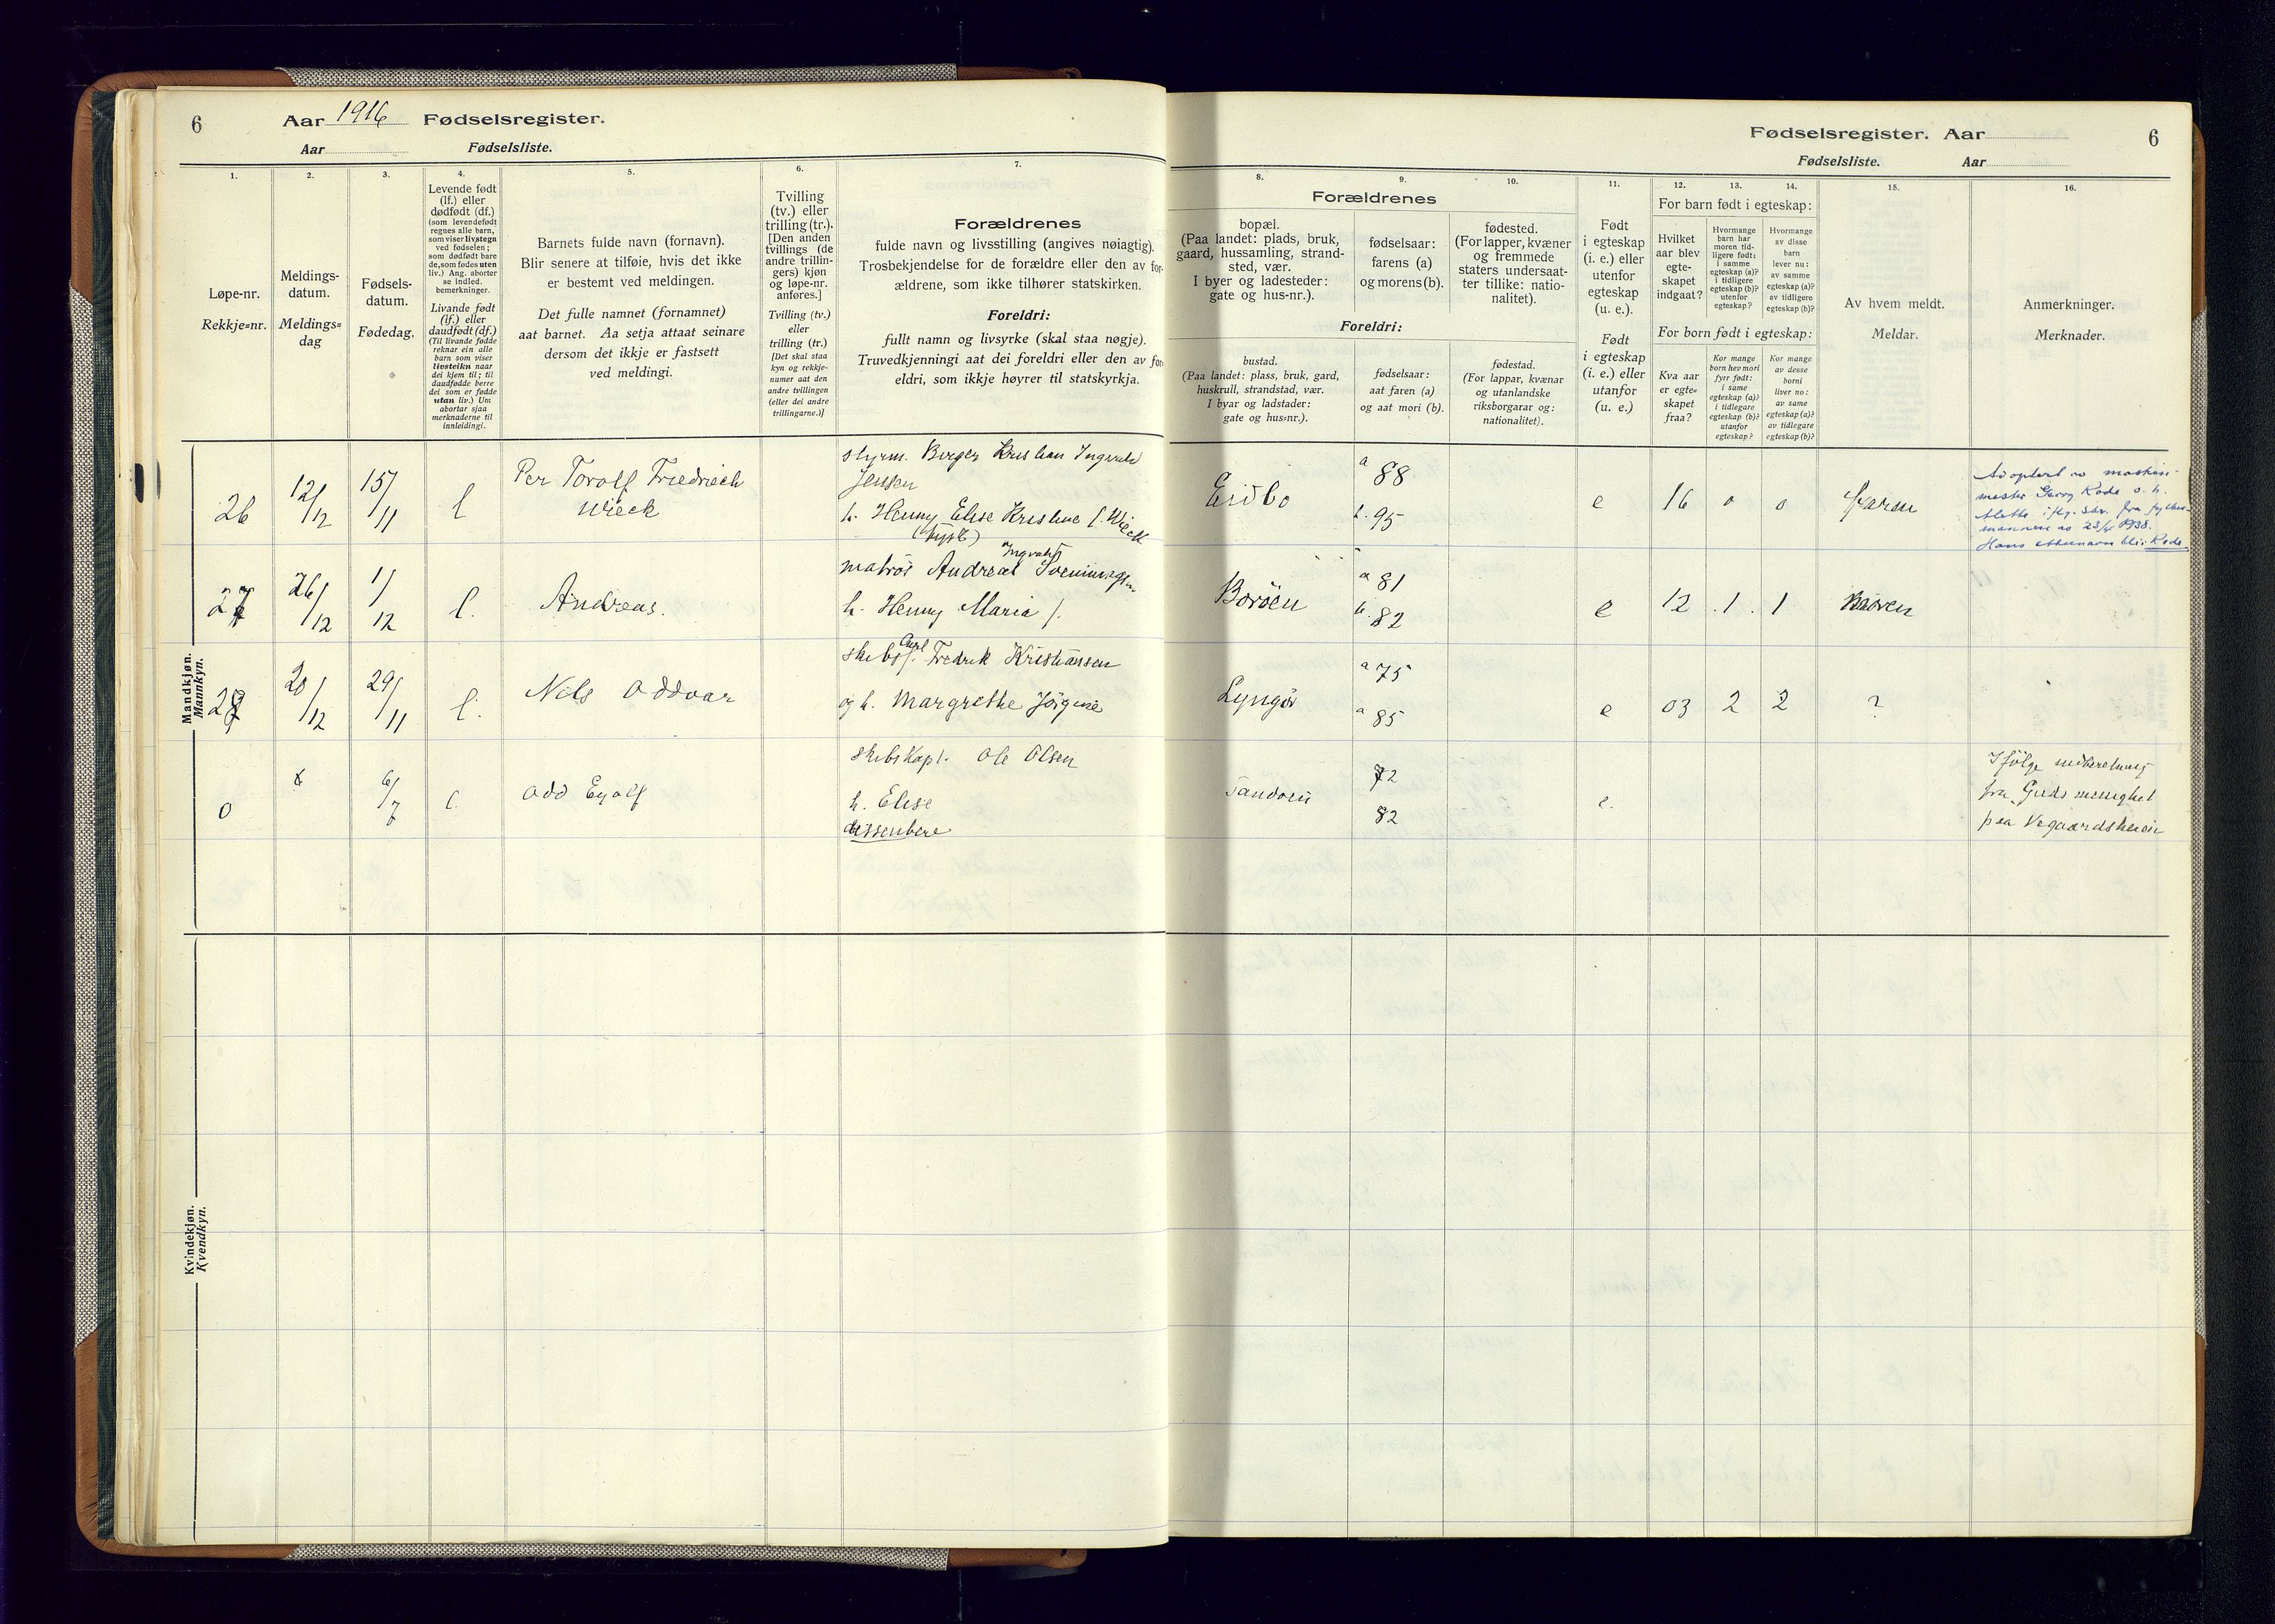 6
Aar 1916 Fødselsregister.
Aar Fødselsliste.
Fødselsregister. Aar
6
Fødselsliste. Aar
1.
Løpe-nr.
Rekkje-nr.
2.
Meldings-
datum.
Meldings-
dag
3.
Fødsels-
datum.
Fødedag.
4.
Levende født
(lf.) eller
dødfødt (df.)
(som levendefødt
regnes alle barn,
som viser livstegn
ved fødselen;
som dødfødt bare
de, som fødes uten
liv.) Ang. aborter
se indled.
bemerkninger.
Livande født
(lf.) eller
daudfødt (df.)
(Til livande fødde
reknar ein alle
barn som viser
livsteikn naar
dei kjem til; til
daudfødde berre
dei som er fødde
utan liv.) Um
abortar sjaa
merknaderne til
innleidingi.
5.
Barnets fulde navn (fornavn).
Blir senere at tilføie, hvis det ikke
er bestemt ved meldingen.
Det fulle namnet (fornamnet)
aat barnet. Aa setja attaat seinare
dersom det ikkje er fastsett
ved meldingi.
6.
Tvilling
(tv.) eller
trilling (tr.).
[Den anden
tvillings (de
andre trillin-
gers) kjøn
og løpe-nr.
anføres.]
Tvilling (tv.)
eller
trilling (tr.)
[Det skal staa
kyn og rekkje-
numer aat den
andre tvillingen
(eller dei andre
trillingarne.)]
7.
Forældrenes
fulde navn og livsstilling (angives nøiagtig).
Trosbekjendelse for de forældre eller den av for-
ældrene, som ikke tilhører statskirken.
Foreldri:
fullt namn og livsyrke (skal staa nøgje).
Truvedkjenningi aat dei foreldri eller den av for-
eldri, som ikkje høyrer til statskyrkja.
8.
Forældrenes
bopæl.
(Paa landet: plads, bruk,
gaard, hussamling, strand-
sted, vær.
I byer og ladesteder:
gate og hus-nr.).
Foreldri:
bustad.
(Paa landet: plass, bruk, gard,
huskrull, strandstad, vær.
I byar og ladstader:
gate og hus-nr.).
9.
fødselsaar:
farens (a)
og morens (b).
fødselsaar:
aat faren (a)
og aat mori (b).
10.
fødested.
(For lapper, kvæner
og fremmede
staters undersaat-
ter tillike: natio-
nalitet).
fødestad.
(For lappar, kvænar
og utanlandske
riksborgarar og:
nationalitet).
11.
Født
i egteskap
(i. e.) eller
utenfor
egteskap
(u. e.).
Født
i egteskap
(i. e.) eller
utanfor
(u. e.)
12. 13. 14.
For barn født i egteskap:
Hvilket
aar blev
egte-
skapet
indgaat?
Hvormange
barn har
moren tid-
ligere født:
i samme
egteskap (a)?
i tidligere
egteskap (b)?
utenfor
egteskap?
Hvormange
av disse
barn
lever nu:
av samme
egteskap (a)?
av tidligere
egteskap (b)?
For born født i egteskap:
Kva aar
er egte-
skapet
fraa?
Kor mange
born hev mori
fyrr født:
i same
egteskap (a)?
i tidlegare
egteskap (b)?
utanfor
egteskap?
Kor mange
av desse
borni
liver no:
av same
egteskap (a)?
av tidlegare
egteskap (b)?
15.
Av hvem meldt.
Meldar.
16.
Anmerkninger.
Merknader.
Mandkjøn.
Mannkyn.
26 12/12 15/11 l Per Torolf Friedrich
Wieck
styrm. Birger Kristian Ingvald
Jensen
h. Henny Elise Kristine f. Wieck
Eidbo a 88
b. 95
e 16 0 0 faren
Adoptert av maskin-
mester Georg Rode o. h.
iflg. skr. fra fylkes-
mannen av 23/4 1938.
Hans etternavn blir Rode.
27 26/12 1/12 l. Andreas.
matros Andreas Ingvald Sveinungsen
h. Henny Maria f.
Borøen a 81
b. 82
e 12 1. 1
28 20/12 29/11 l. Nils Oddvar
skibsf. Carl Fredrik Kristiansen
og h. Margrethe Jørgine
Lyngør a 75
a 85
e 03 2 2 ?
0 6/7 l Odd Eyolf
skibskapt. Ole Olsen
h. Elise
dissentere
Sandøen 72
82
e.
Ifølge indberetning
fra Guds menighet
paa Vegaardsheien
Kvindekjøn.
Kvendkyn.